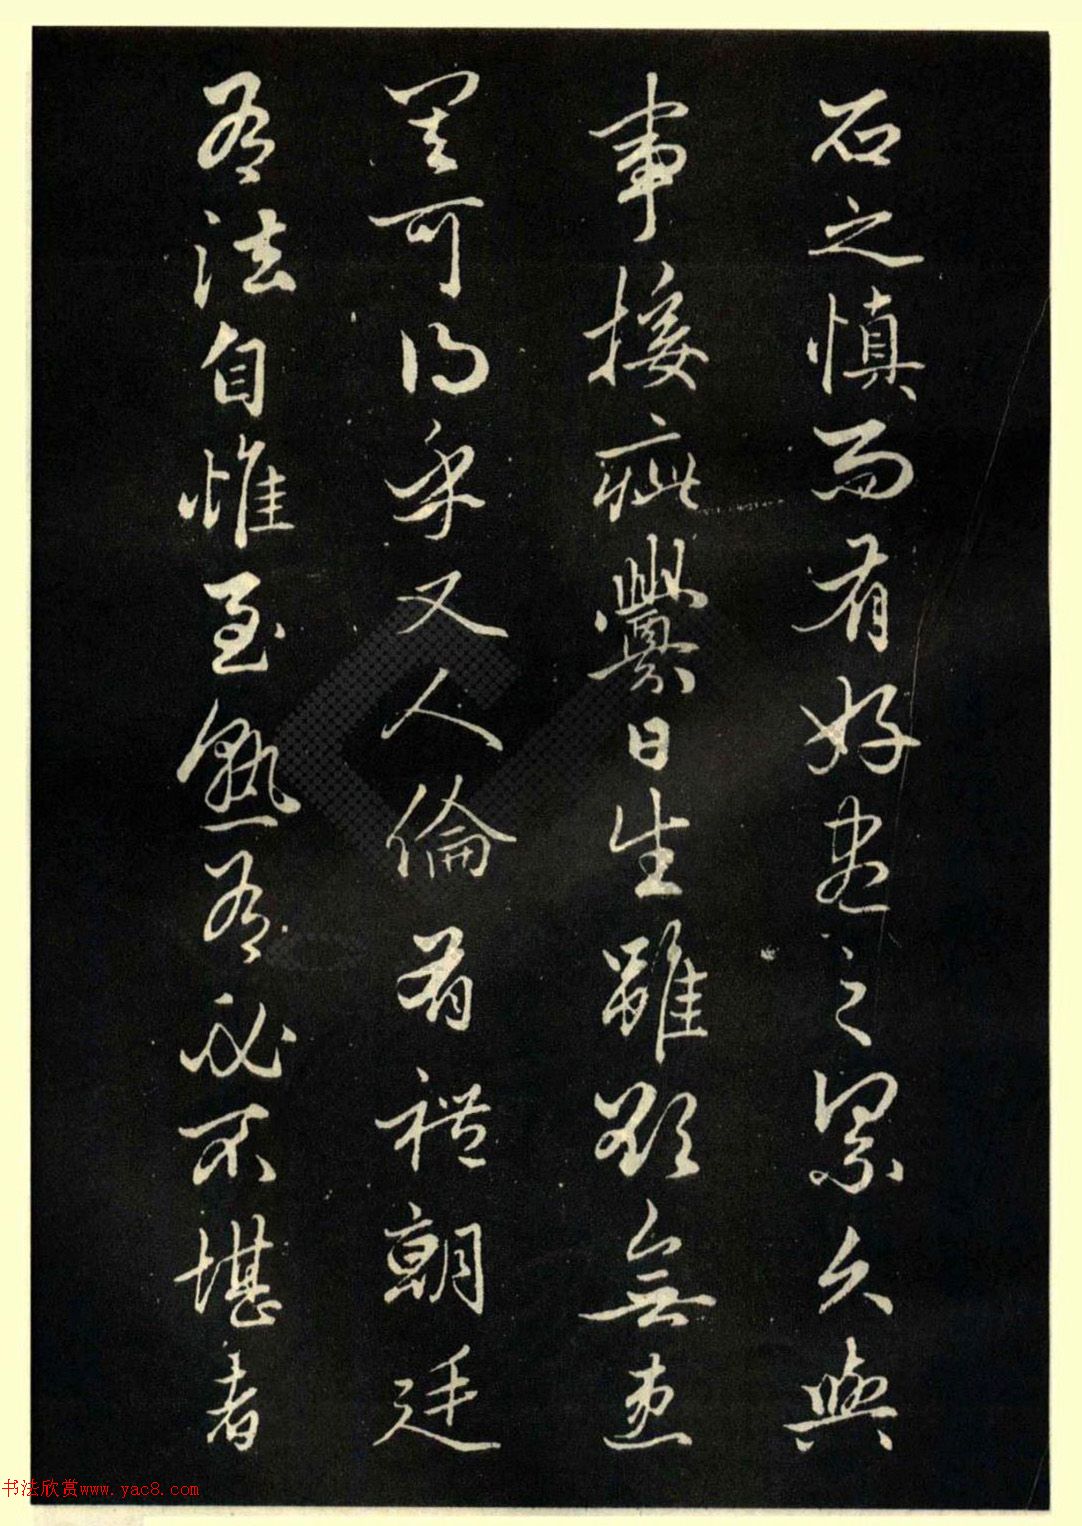 石之慎而有好盡之累久與
事接疵釁日生雖欲無患
其可得乎又人倫有禮朝廷
有法自惟至熟有必不堪者
书法欣赏www.yac8.com